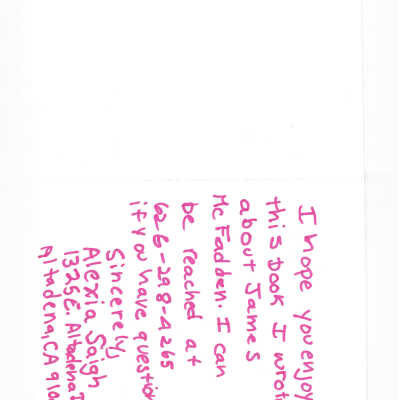 I hope you enjoy
this book I wrot
about James
McFadden. I can
be reached at
626-298-4265
if you have question
Sincerely,
Alexia Saigh
1325 E. Altadena
Altadena, CA 910